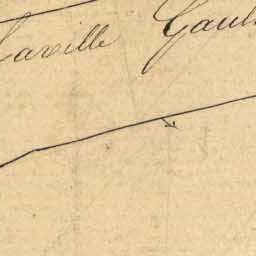 Laville Gaul